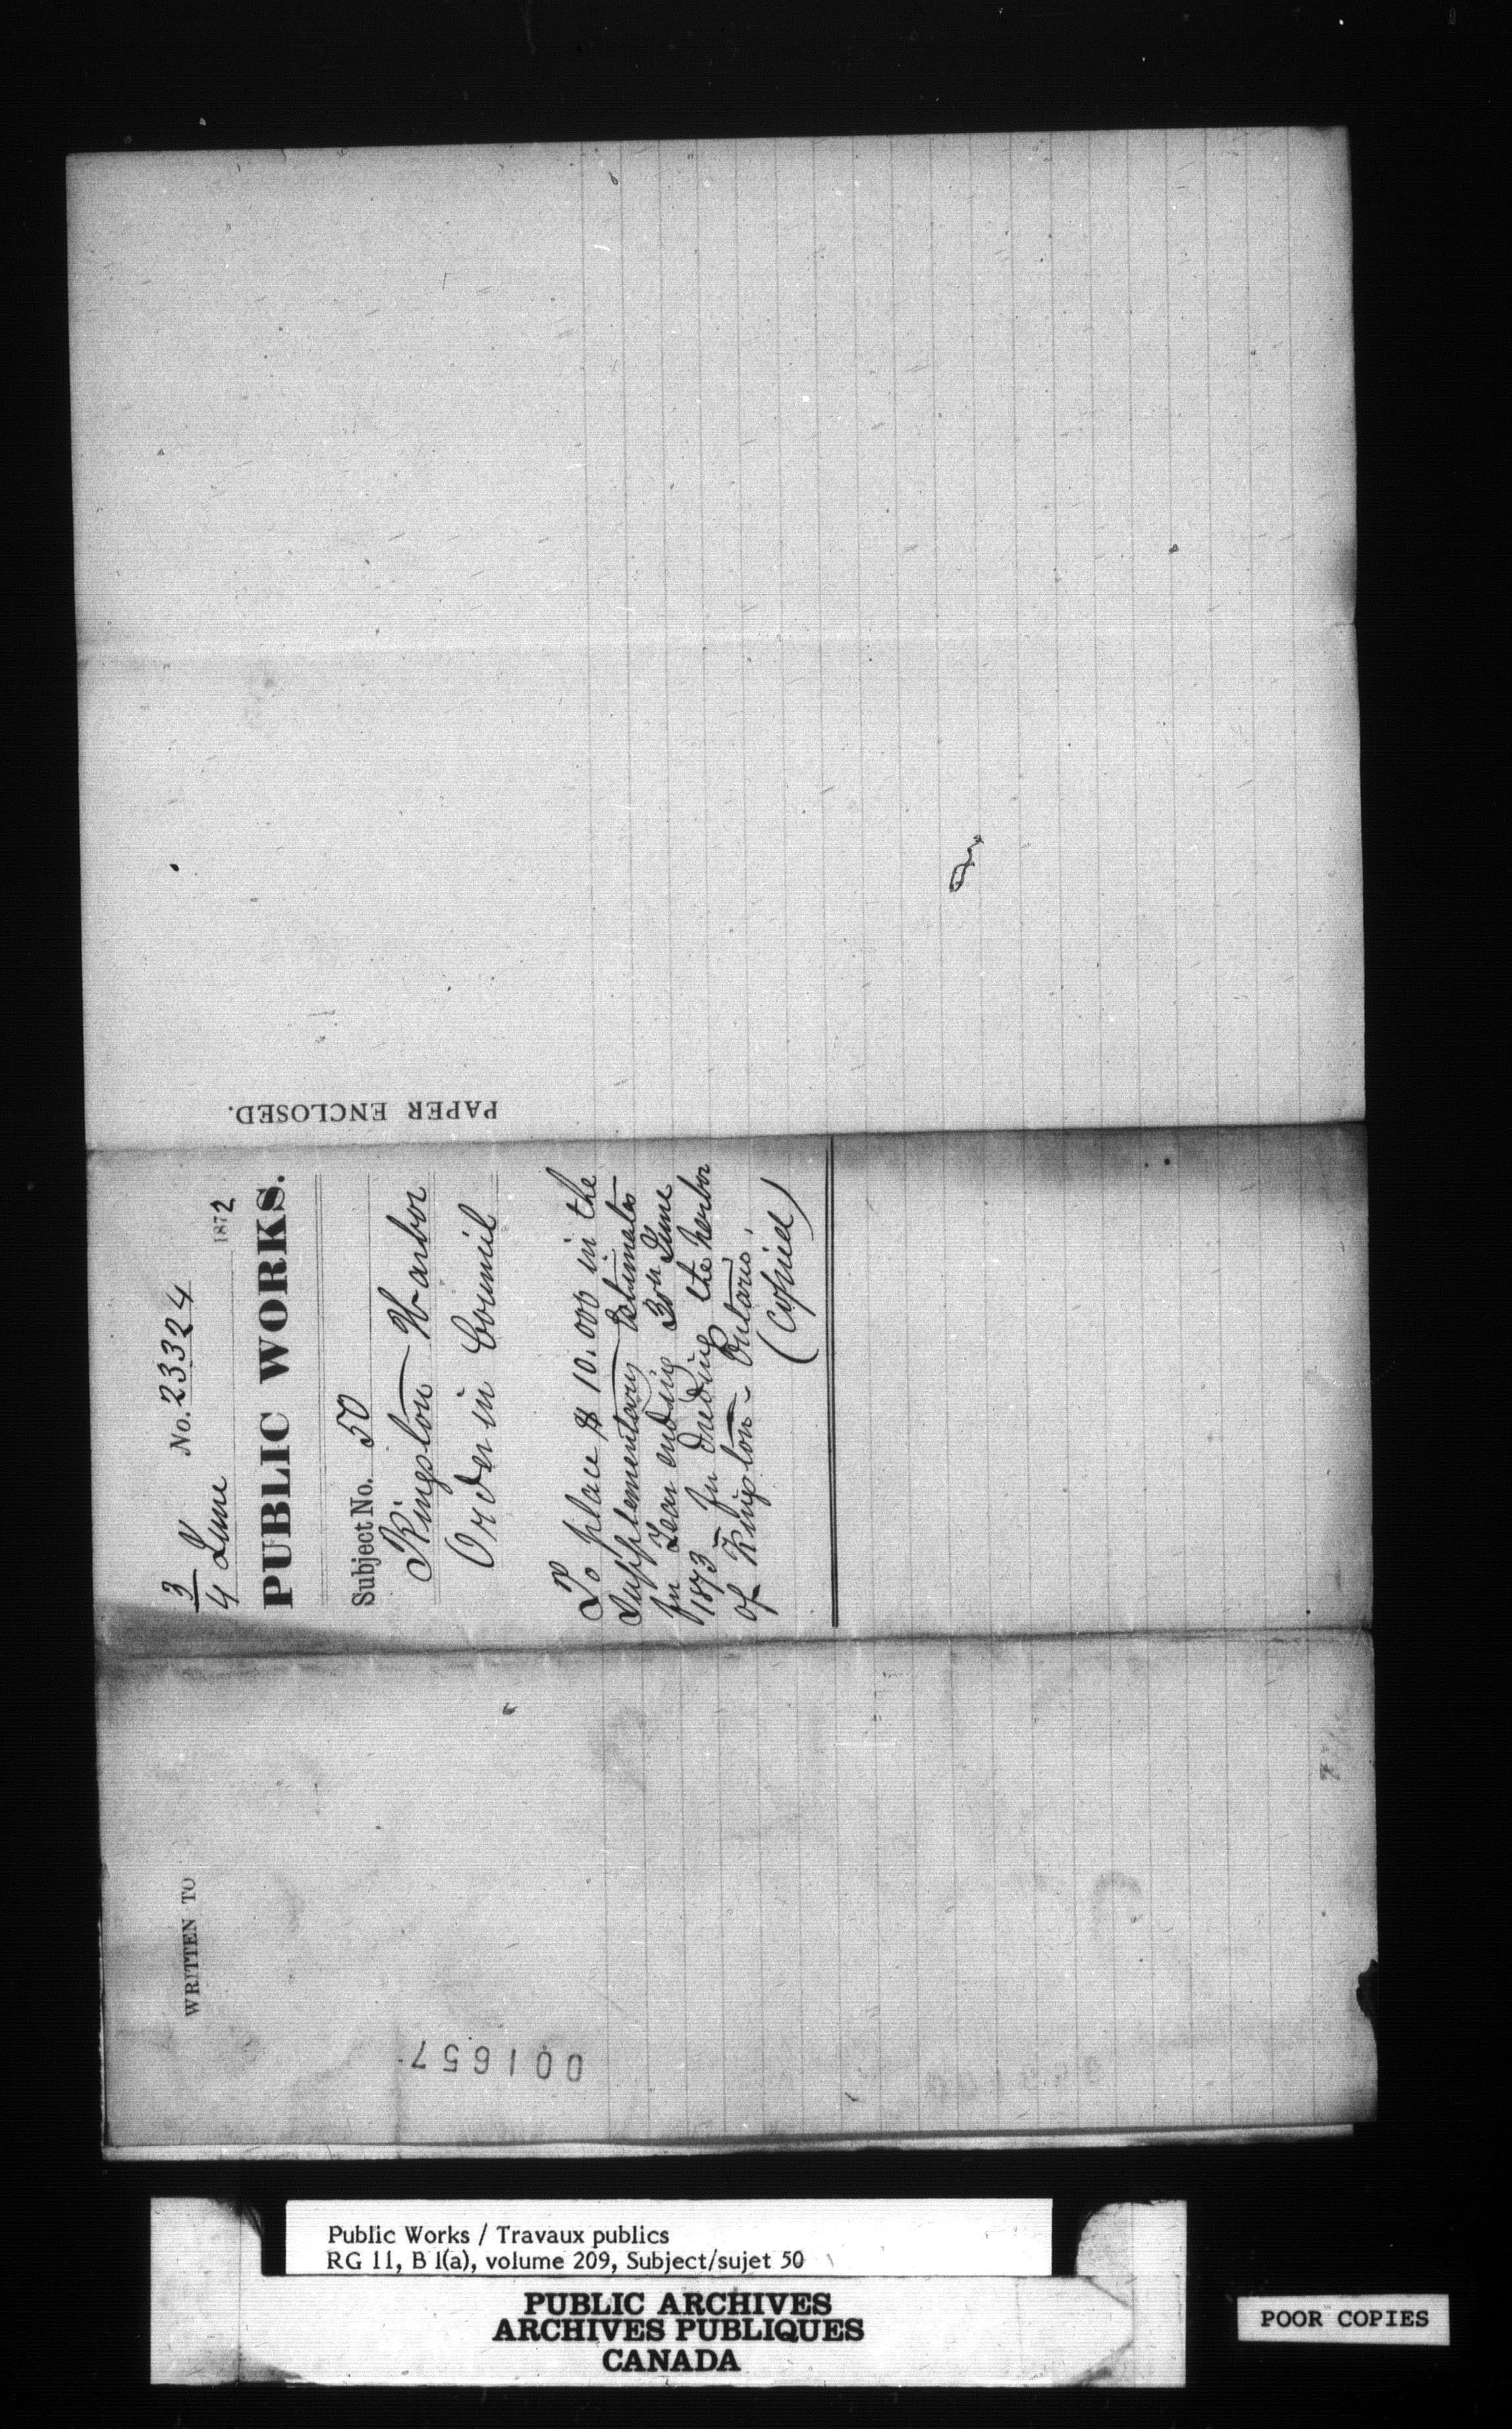 3/4 No. 23324
June 1872
PUBLIC WORKS.
Subject No. 50
Kingston Harbor
Order in Council
To place $10.000 in the
Supplementary Estimates
for Year ending 30th June
1873 – for dredging the harbor
of Kingston – Ontario.
(Copied)
PAPER ENCLOSED.
WRITTEN TO
001657
Public Works / Travaux publics
RG 11, B 1(a), volume 209, Subject/sujet 50
PUBLIC ARCHIVES
ARCHIVES PUBLIQUES
CANADA
POOR COPIES